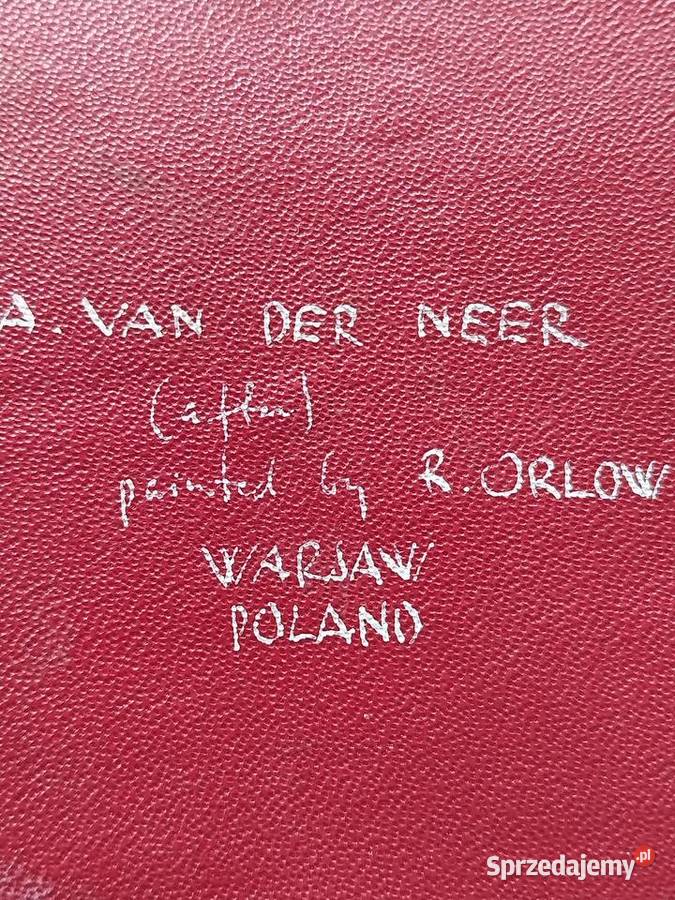 A. VAN DER NEER
(after)
painted by R. ORLOW
WARSAW
POLAND
Sprzedajemy.pl